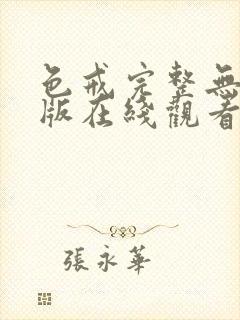 色戒完整無
版在綫觀看
張永華